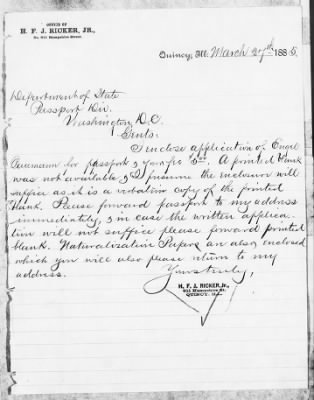 OFFICE OF
H. F. J. RICKER, JR.,
No. 611 Hampshire Street.
Quincy, Ill. March 27th 1885.
Department of State
Passport Div.
Washington D.C.
Gents:
I enclose application of Engel
for passport & your fee 5.00. A printed blank
was not available & I presume the enclosure will
suffice as it is a verbatim copy of the printed
blank. Please forward passport to my address
immediately, & in case the written applica-
tion will not suffice please forward printed
blank. Naturalisation Papers are also enclosed
which you will also please return to my
address.
Yours truly,
H. F. J. RICKER, Jr.,
611 Hampshire St.
QUINCY, ILL.